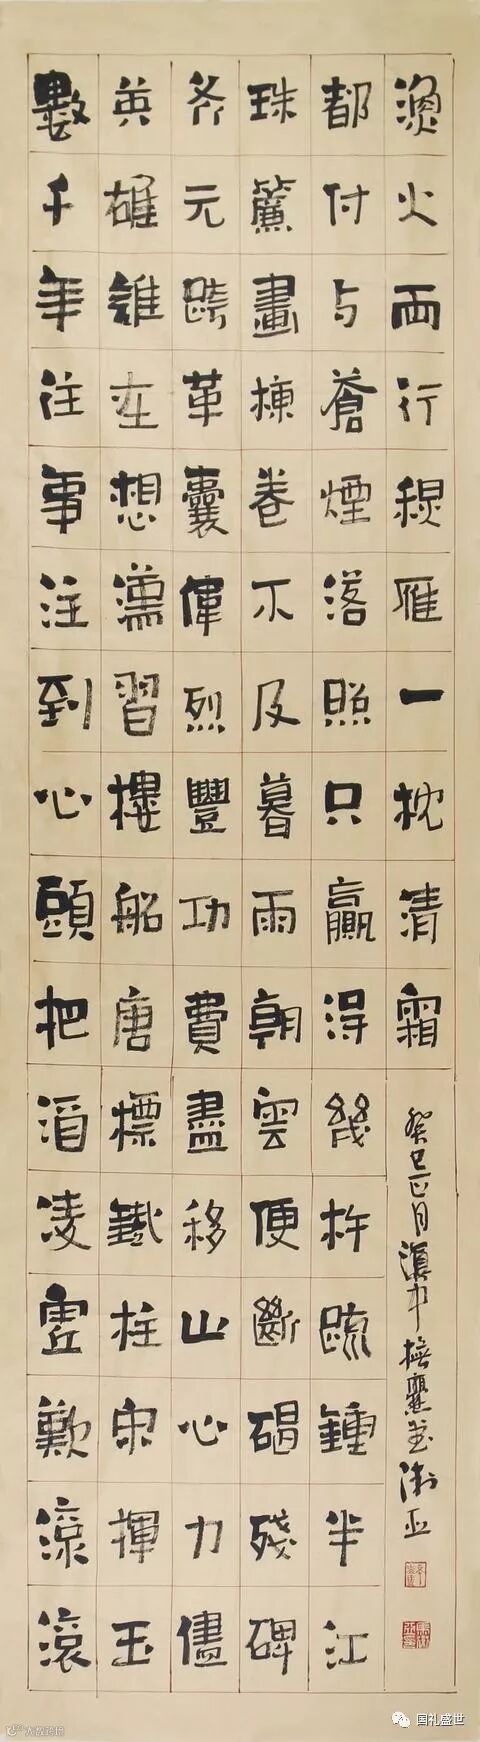 數千年往事注到心頭把酒凌虛歎滾滾
英雄誰在想漢習樓船唐標鐵柱宋揮玉
斧元跨革囊偉烈豐功費盡移山心力儘
珠簾畫棟卷不及暮雨朝雲便斷碣殘碑
都付与蒼煙落照只贏得幾杵疏鍾半江
漁火兩行秋雁一枕清霜
癸巳正月滇中
国礼盛世